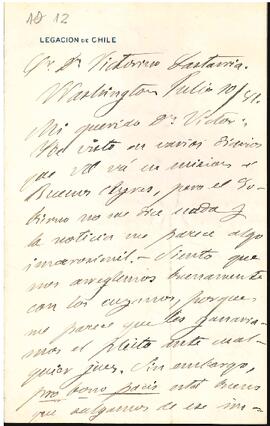 LEGACION DE CHILE
Sr. Dn. Victorino Lastarria.
Washington Julio 10/
Mi querido Dn. Victor:
He visto en varios diarios
que Ud vá en mision a
Buenos Ayres, pero el Go-
bierno no me dice nada y
la noticia me parece algo
inverosimil. - Siento que
nos arreglemos buenamente
con los cuyanos, porque
me parece que les ganaria-
mos el pleito ante cual-
quier juez. Sin embargo,
pro bono pacis está bueno
que salgamos de ese im-